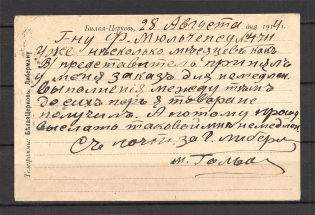 Белая-Церковь, 28 Августа дня 1914.
Г-ну Ф. Мюльгенсу
Уже нѣсколько мѣсяцев как
В/ представитель принял
у меня заказ для немедлен.
выполнения между тѣм
до сих пор я товара не
получил. А потому прошу
выслать таковой мнѣ немедлен.
С почт. за Г.
М.
Телеграммы: Бѣлая Церковь,